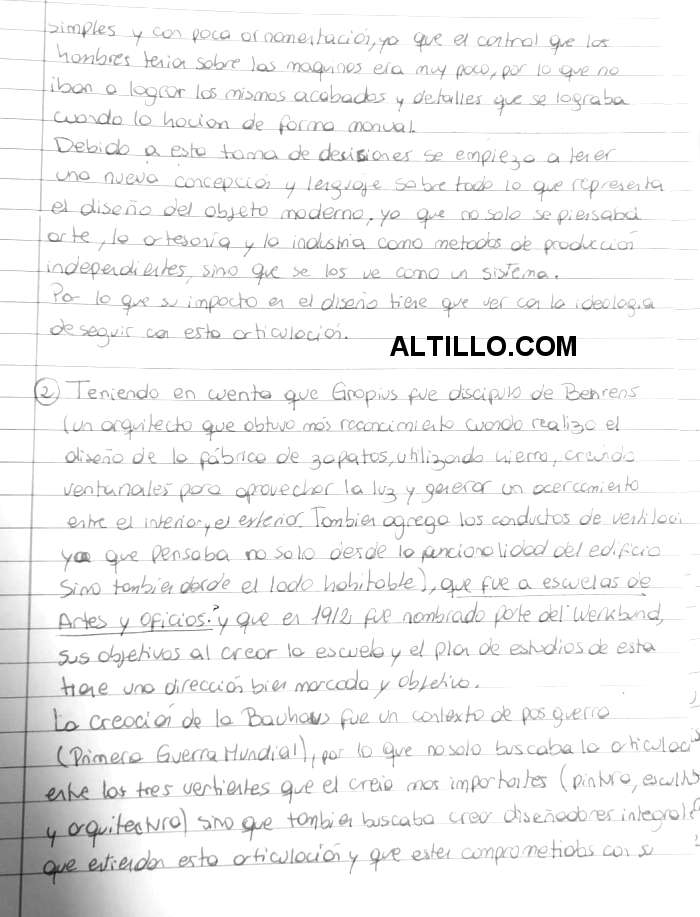 simples y con poca ornamentación, ya que el control que los
hombres tenian sobre las maquinas era muy poco, por lo que no
iban a lograr los mismos acabados y detalles que se lograba
cuando lo hacian de forma manual.
Debido a esta toma de decisiones se empieza a tener
una nueva concepción y lenguaje sobre todo lo que representa
el diseño del objeto moderno, ya que no solo se piensaba
arte, la artesania y la industria como metodos de producción
independientes, sino que se los ve como un sistema.
Por lo que su impacto en el diseño tiene que ver con la ideologia
de seguir con esta articulación.
ALTILLO.COM
2 Teniendo en cuenta que Gropius fue discipulo de Behrens
(un arquitecto que obtuvo más reconocimiento cuando realizo el
diseño de la fábrica de zapatos, utilizando hierro, creando
ventanales para aprovechar la luz y generar un acercamiento
entre el interior y el exterior. Tambien agrego los conductos de ventilaci
ya que pensaba no solo desde la funcionalidad del edificio
sino tambien desde el lado habitable), que fue a escuelas de
Artes y oficios.? y que en 1912 fue nombrado parte del Werkbund,
sus objetivos al crear la escuela y el plan de estudios de esta
tiene una dirección bien marcada y objetiva.
La creación de la Bauhaus fue un contexto de pos guerra
(Primera Guerra Mundial), por lo que no solo buscaba la articulaci
entre las tres vertientes que el creia mas importantes (pintura, escultu
y arquitectura) sino que tambien buscaba crear diseñadores integrale
que entiendan esta articulación y que esten comprometidos con su